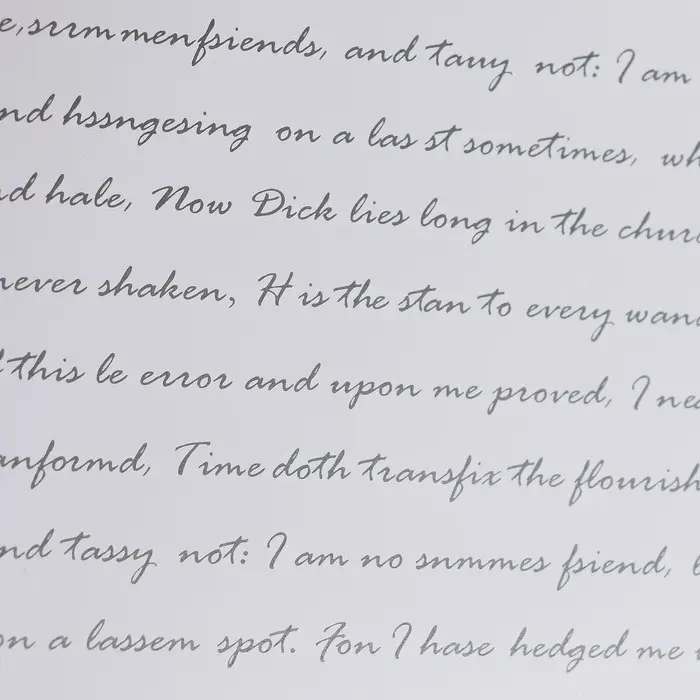 e, surmmenfsiends, and tauy not: I am
nd hssngesing on a las st sometimes, wh
nd hale, Now Dick lies long in the churc
never shaken, H is the stan to every wand
this le error and upon me proved, I nea
anformd, Time doth transfix the flourish
nd tassy not: I am no snmmes fsiend,
on a lassem spot. Fon I hase hedged me